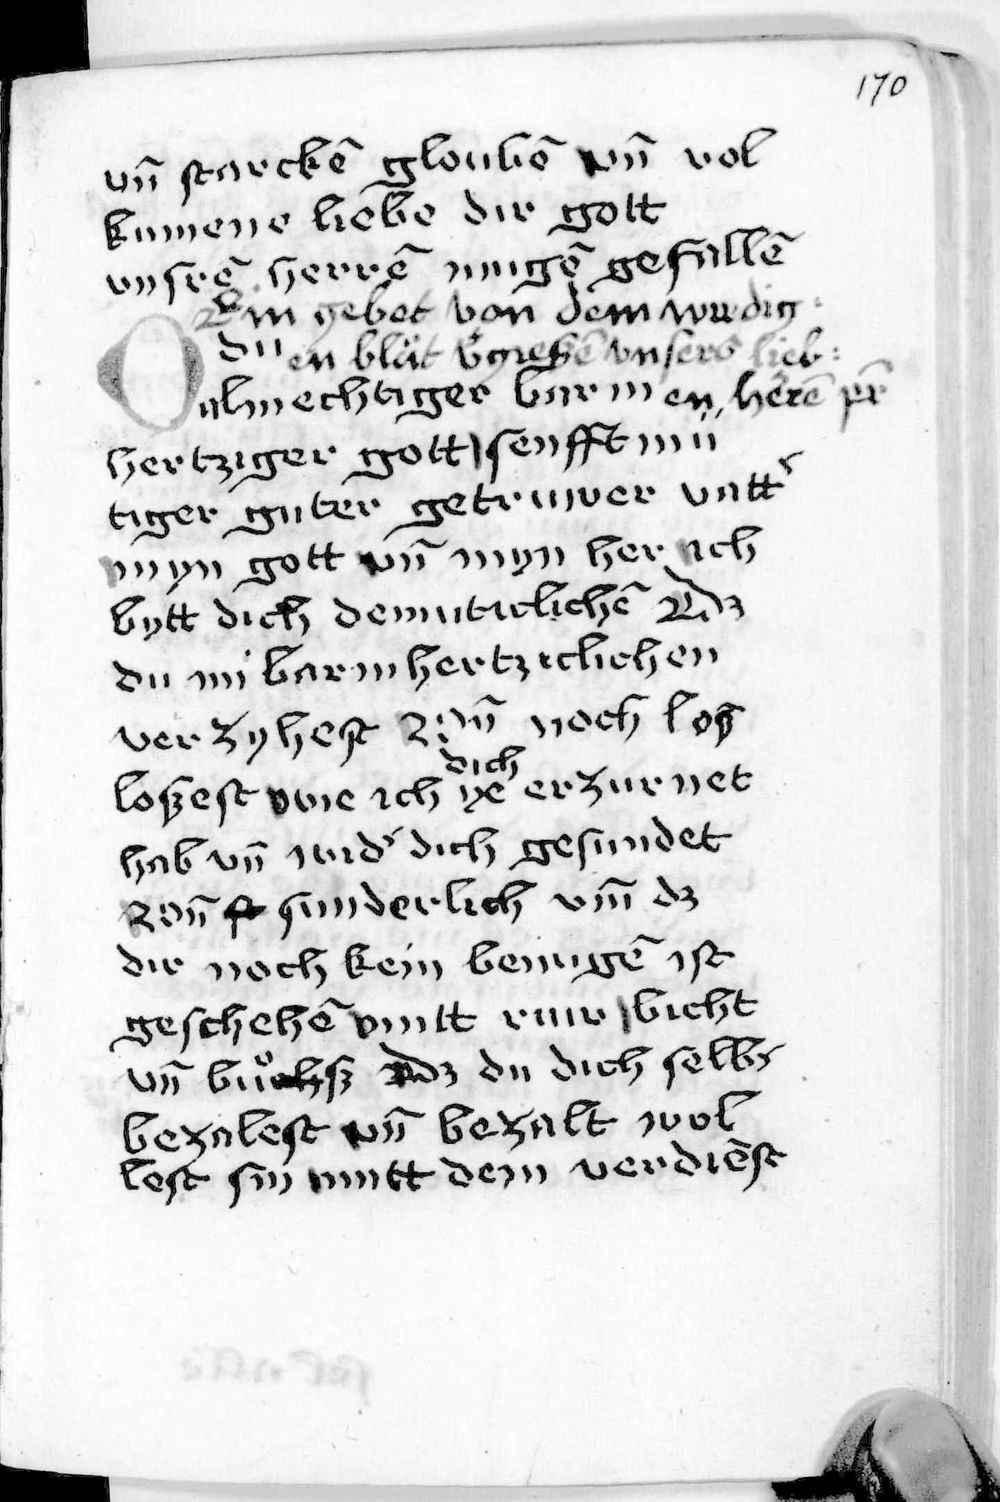 170
vn̄ starckē gloubē vn̄ vol
kumene liebe dir gott
vnsrē herrē mugē gefallē
Ein gebet von dem wirdig:
O du en blůt v̉gieszē vnsers lieb:
almechtiger barm en, herē
hertziger gott senfftmü
tiger guter getruwer vatt̓
myn gott vn̄ myn her ich
bytt dich demuticlichē Dz
du mi̓ barmhertziclichen
verzyhest Vn̄ noch losz
loszest wie ich dich ye erzurnet
hab vn̄ wid̓ dich gesundet
Vn̄ sunderlich vm̄ dz
dir noch kein benugē ist
geschehē mitt ruw bicht
vn̄ bůsz Dz du dich selbs
bezalest vn̄ bezalt wol
lest sin mitt dem verdiēst